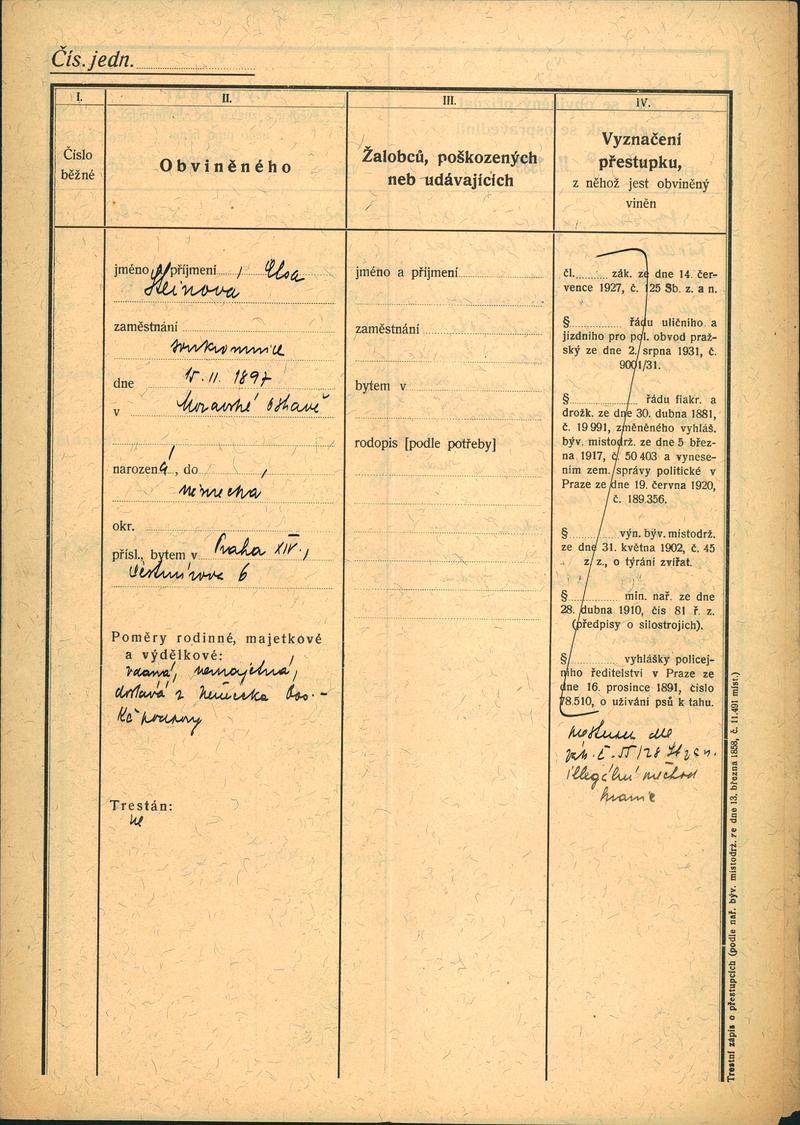 Čís. jedn.
I.
Číslo
běžné
II.
Obviněného
III.
Žalobců, poškozených
neb udávajících
IV.
Vyznačení
přestupku,
z něhož jest obviněný
viněn
jméno a příjmení Elsa
Steinova
zaměstnání
soukromnice
dne 15. II. 1897
v Moravské Ostravě
narozená, do
Německa
okr.
přísl., bytem v Praha XIV.,
6
Poměry rodinné, majetkové
a výdělkové:
vdaná, nemajetná,
dostává z Německa
Kč podpory
Trestán:
ne
jméno a příjmení
zaměstnání
bytem v
rodopis [podle potřeby]
čl. zák. ze dne 14. čer-
vence 1927, č. 125 Sb. z. a n.
§ řádu uličního a
jízdního pro pol. obvod praž-
ský ze dne 2. srpna 1931, č.
9001/31.
§ řádu fiakr. a
drožk. ze dne 30. dubna 1881,
č. 19 991, změněného vyhláš.
býv. místodrž. ze dne 5 břez-
na 1917, č. 50 403 a vynese-
ním zem. správy politické v
Praze ze dne 19. června 1920,
č. 189.356.
§ výn. býv. místodrž.
ze dne 31. května 1902, č. 45
z. z., o týrání zvířat.
§ min. nař. ze dne
28. dubna 1910, čís 81 ř. z.
(předpisy o silostrojích).
§ vyhlášky policej-
ního ředitelství v Praze ze
dne 16. prosince 1891, číslo
78.510, o užívání psů k tahu.
dle
zák. č. 55/28 Sb z a n.
illegální přechod
hranic
Trestní zápis o přestupcích (podle nař. býv. místodrž. ze dne 13. března 1858, č. 11.491 míst.)